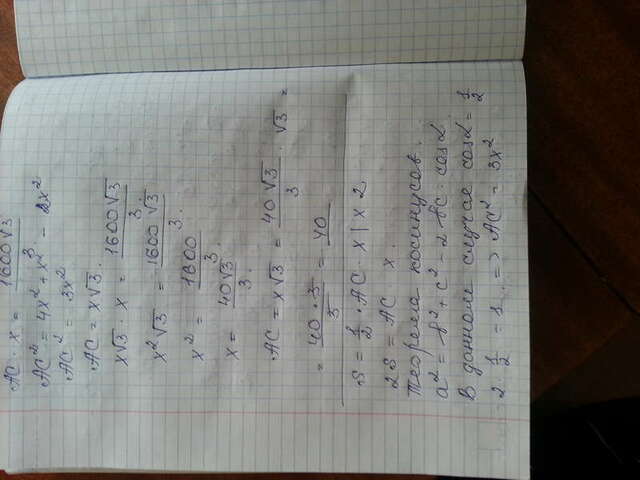 AC · x = 1600√3 / 3
AC² = 4x² + x² - 2x²
AC² = 3x²
AC = x√3
x√3 · x = 1600√3 / 3
x²√3 = 1600√3 / 3
x² = 1600 / 3
x = 40√3 / 3
AC = x√3 = 40√3 / 3 · √3 =
= 40 · 3 / 3 = 40
S = 1/2 · AC · x | × 2
2S = AC · x
Теорема косинусов.
a² = b² + c² - 2 bc · cos α
В данном случае cos α = 1/2
2 · 1/2 = 1 => AC² = 3x²